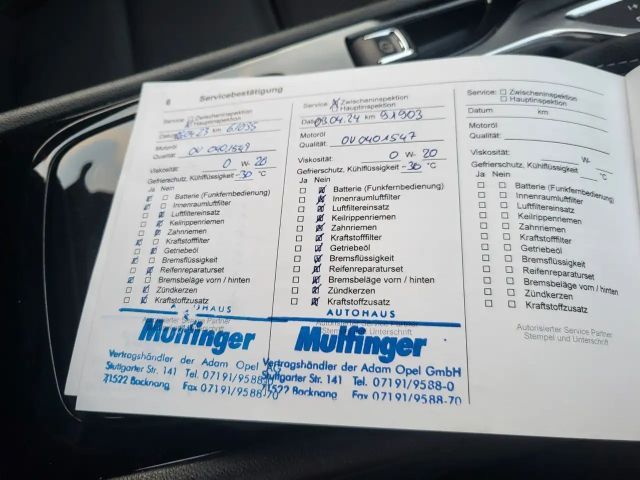 6 Servicebestätigung
Service: Zwischeninspektion
Hauptinspektion
Datum 04.23 km 61055
Motoröl
Qualität: OV 0401547
Viskosität: 0 W- 20
Gefrierschutz, Kühlflüssigkeit -30 °C
Ja Nein
Batterie (Funkfernbedienung)
Innenraumfilter
Luftfiltereinsatz
Keilrippenriemen
Zahnriemen
Kraftstofffilter
Getriebeöl
Bremsflüssigkeit
Reifenreparaturset
Bremsbeläge vorn / hinten
Zündkerzen
Kraftstoffzusatz
Autorisierter Service Partner
AUTOHAUS
Mulfinger
Vertragshändler der Adam Opel AG
Stuttgarter Str. 141 Tel. 07191/9588-0
71522 Backnang Fax 07191/9588-70
Service: Zwischeninspektion
Hauptinspektion
Datum 09.04.24 km 91903
Motoröl
Qualität: OV0401547
Viskosität: 0 W- 20
Gefrierschutz, Kühlflüssigkeit -30 °C
Ja Nein
Batterie (Funkfernbedienung)
Innenraumfilter
Luftfiltereinsatz
Keilrippenriemen
Zahnriemen
Kraftstofffilter
Getriebeöl
Bremsflüssigkeit
Reifenreparaturset
Bremsbeläge vorn / hinten
Zündkerzen
Kraftstoffzusatz
AUTOHAUS
Autorisierter Service Partner
Stempel und Unterschrift
Mulfinger
Vertragshändler der Adam Opel GmbH
Stuttgarter Str. 141 Tel. 07191/9588-0
71522 Backnang Fax 07191/9588-70
Service: Zwischeninspektion
Hauptinspektion
Datum km
Motoröl
Qualität:
Viskosität: W-
Gefrierschutz, Kühlflüssigkeit °C
Ja Nein
Batterie (Funkfernbedienung)
Innenraumfilter
Luftfiltereinsatz
Keilrippenriemen
Zahnriemen
Kraftstofffilter
Getriebeöl
Bremsflüssigkeit
Reifenreparaturset
Bremsbeläge vorn / hinten
Zündkerzen
Kraftstoffzusatz
Autorisierter Service Partner
Stempel und Unterschrift